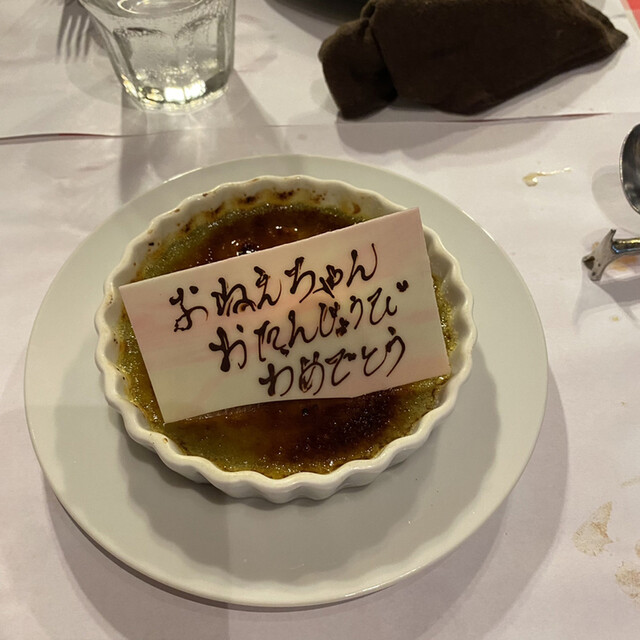 おねえちゃん
おたんじょうび
おめでとう